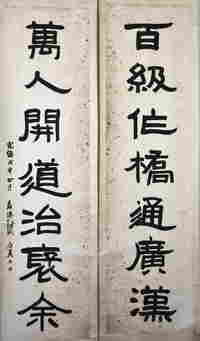 百級作橋通廣漢
萬人開道治褒余